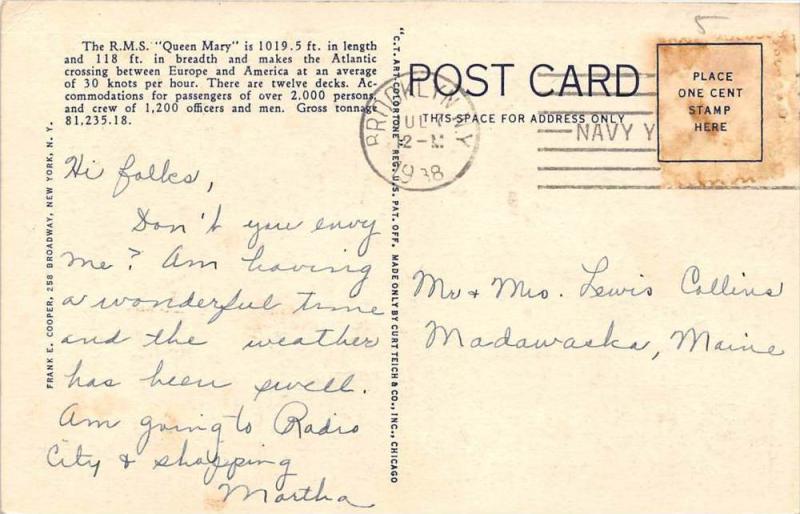 The R.M.S. "Queen Mary" is 1019.5 ft. in length
and 118 ft. in breadth and makes the Atlantic
crossing between Europe and America at an average
of 30 knots per hour. There are twelve decks. Ac-
commodations for passengers of over 2,000 persons
and crew of 1,200 officers and men. Gross tonnage
81,235.18.
Hi folks,
Don't you envy
me? Am having
a wonderful time
and the weather
has been swell.
Am going to Radio
City & shopping
Martha
FRANK E. COOPER, 258 BROADWAY, NEW YORK, N. Y.
"C.T. ART-COLORTONE" REG. U.S. PAT. OFF. MADE ONLY BY CURT TEICH & CO., INC., CHICAGO
POST CARD
THIS SPACE FOR ADDRESS ONLY
BROOKLYN, N.Y.
JUL
12-M
1938
NAVY Y
5
PLACE
ONE CENT
STAMP
HERE
Mr & Mrs. Lewis Collins
Madawaska, Maine